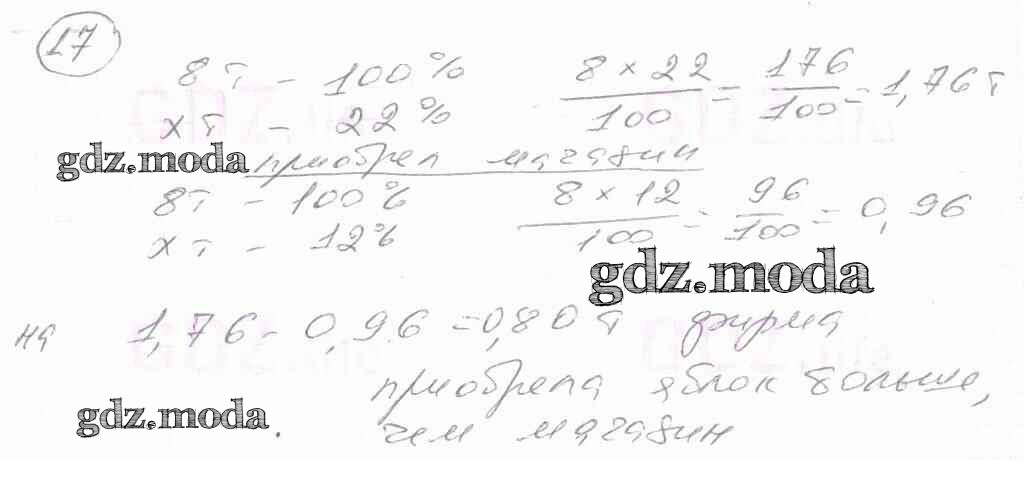 17
8т - 100%   8 × 22 / 100 = 176 / 100 = 1,76т
хт - 22%
gdz.moda приобрел магазин
8т - 100%   8 × 12 / 100 = 96 / 100 = 0,96
хт - 12%
gdz.moda
на 1,76 - 0,96 = 0,80т фирма
приобрела яблок больше,
gdz.moda . чем магазин